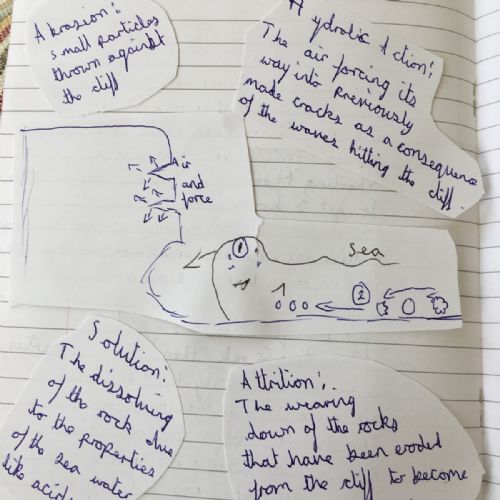 Abrasion:
small particles
thrown against
the cliff
Hydrolic Action:
The air forcing its
way into previously
made cracks as a consequence
of the waves hitting the cliff.
Air
and
force
1
sea
2
1
Solution:
The dissolving
of the rock due
to the properties
of the sea water
like acid
Attrition:
The wearing
down of the rocks
that have been eroded
from the cliff to become